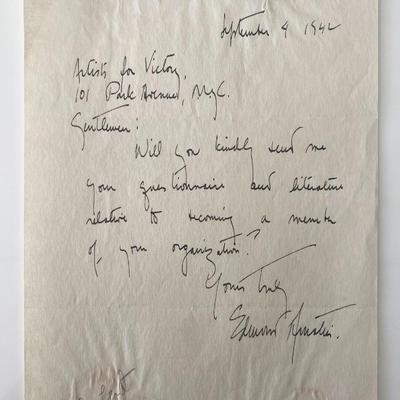 September 4 1942
Artists for Victory,
101 Park Avenue, N.Y.C.
Gentlemen:
Will you kindly send me
your questionnaire and literature
relative to becoming a member
of your organization?
Yours truly
Edmond